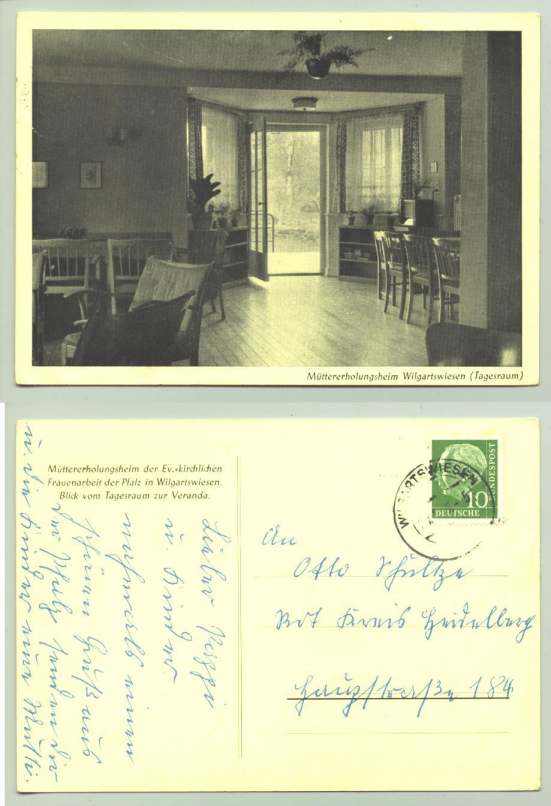 Müttererholungsheim Wilgartswiesen (Tagesraum)
Müttererholungsheim der Ev.-kirchlichen
Frauenarbeit der Pfalz in Wilgartswiesen.
Blick vom Tagesraum zur Veranda.
WILGARTSWIESEN
10
DEUTSCHE
BUNDESPOST
An
Otto Schultze
Rot Kreis Heidelberg
Hauptstraße 184
Lieber
u. Kinder.
nochmals einen
schönen Gruß aus
der Pfalz senden Dir
u. die Kinder eure Mutti.